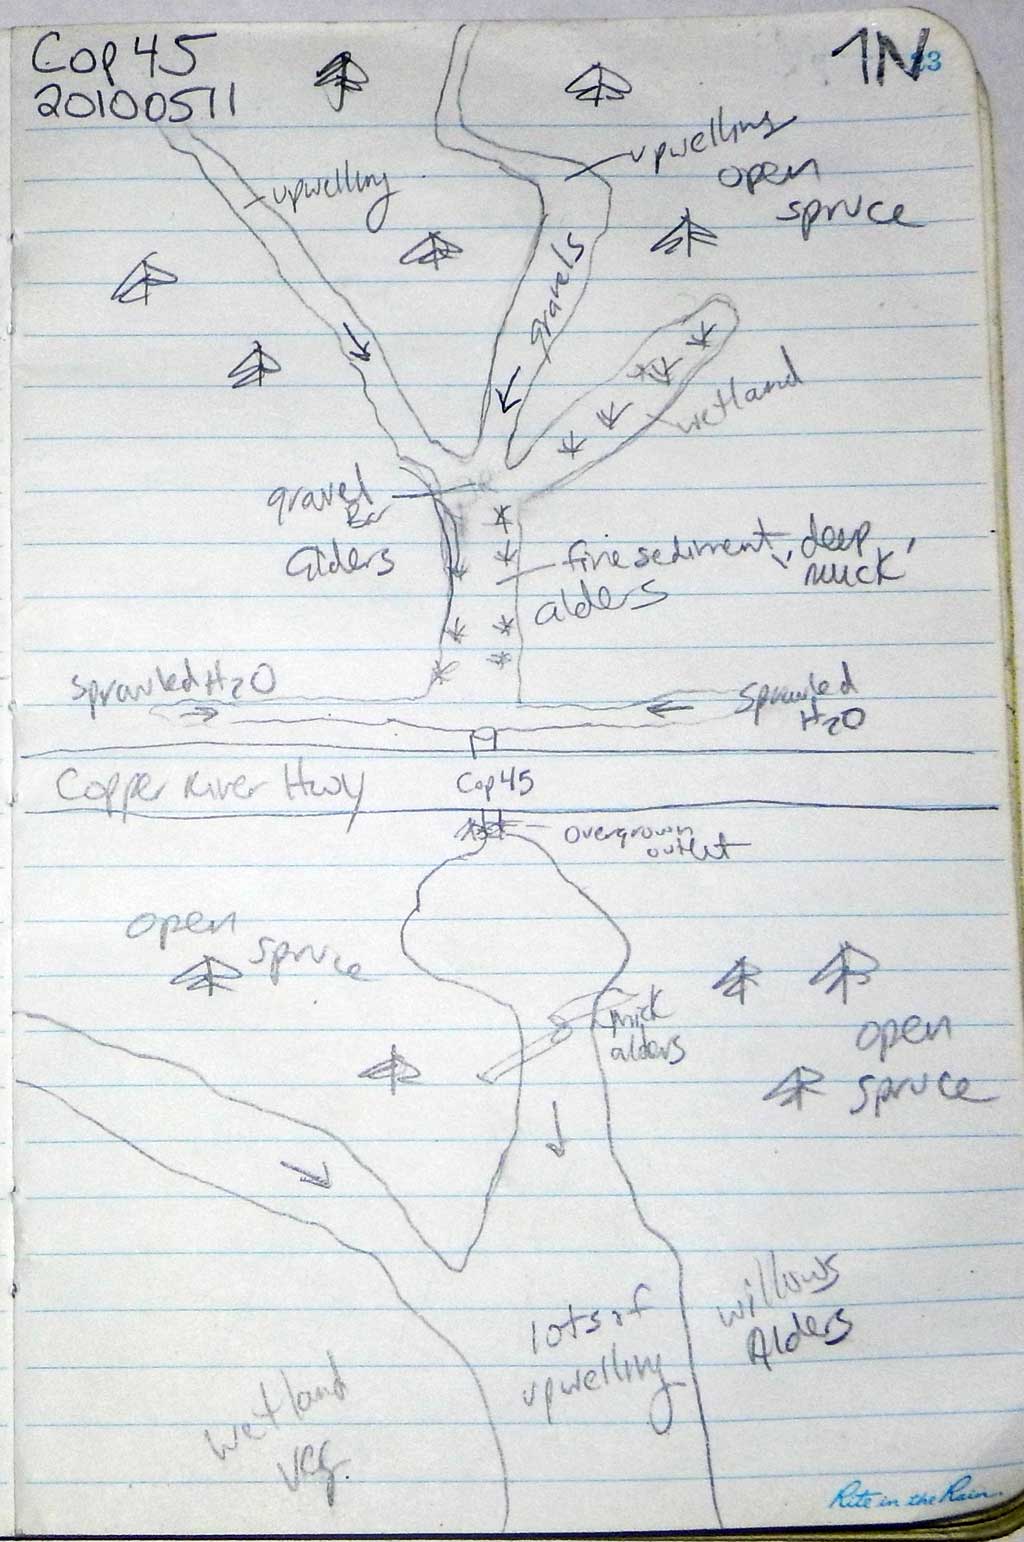 Cop 45
20100511
1N
23
upwelling
upwelling
open
spruce
gravels
wetland
gravel
Bar
Alders
fine sediment "deep
muck"
alders
Sprawled H2O
Sprawled
H2O
Copper River Hwy
Cop45
overgrown
outlet
open
spruce
thick
alders
open
spruce
willows
Alders
lots of
upwelling
wetland
veg.
Rite in the Rain